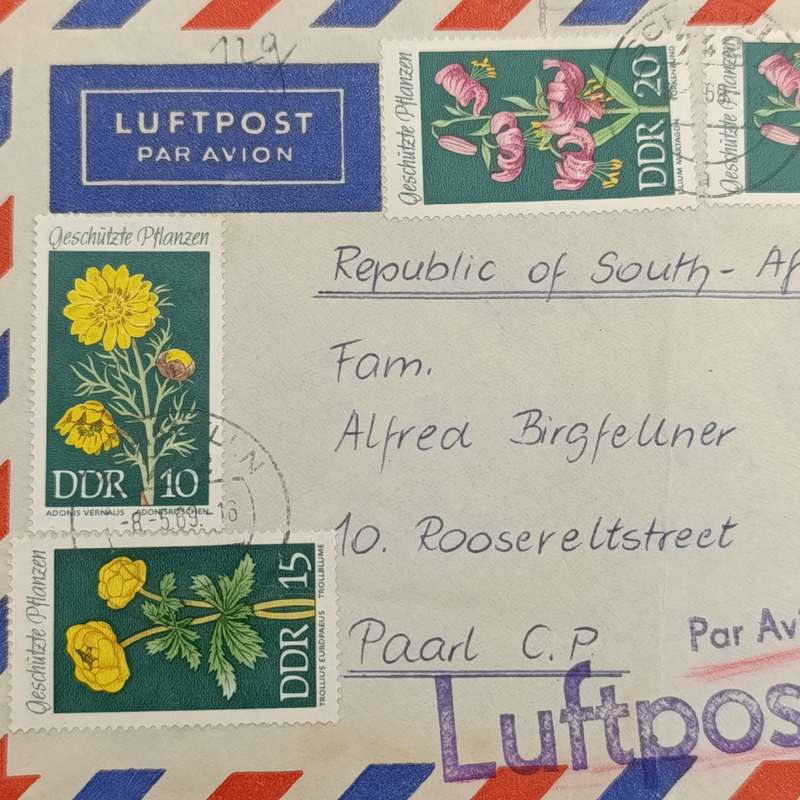 12g
LUFTPOST
PAR AVION
Geschützte Pflanzen
DDR 20
LILIUM MARTAGON TÜRKENBUND
Geschützte Pflanzen
Geschützte Pflanzen
DDR 10
ADONIS VERNALIS ADONISRÖSCHEN
-8-5.69.16
Geschützte Pflanzen
DDR 15
TROLLIUS EUROPAEUS TROLLBLUME
Republic of South-Af
Fam.
Alfred Birgfellner
10. Roosereltstreet
Paarl C.P.
Par Avi
Luftpos